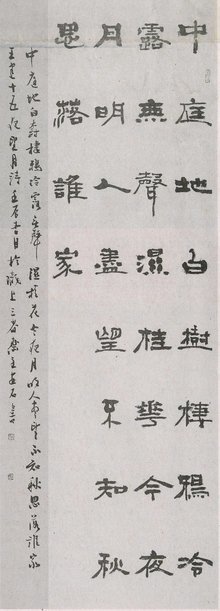 中庭地白樹棲鴉冷
露無聲濕桂花今夜
月明人盡望不知秋
思落誰家
中庭地白樹棲鴉冷露無聲濕桂花今夜月明人盡望不知秋思落誰家
王建十五夜望月詩